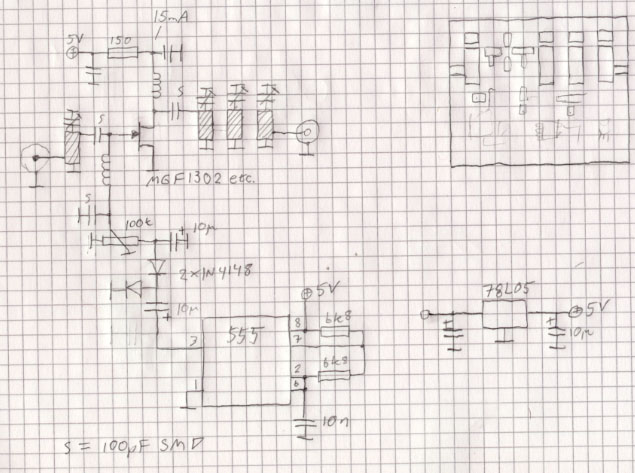 15mA
5V
150
S
S
MGF1302 etc.
S
100k
10µ
2x1N4148
10µ
5V
555
8
7
6k8
6k8
3
2
6
1
10n
78L05
5V
10µ
S = 100pF SMD